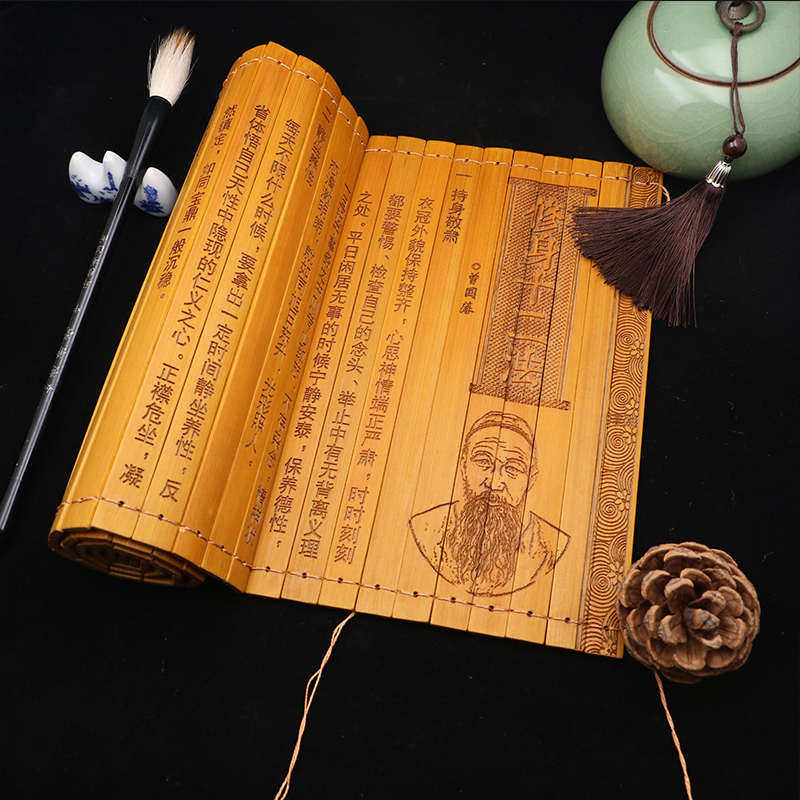 修身十二
◎曾国藩
一 持身敬肃
衣冠外貌保持整齐，心思神情端正严肃，时时刻刻
都要警惕、检查自己的念头、举止中有无背离义理
之处。平日闲居无事的时候宁静安泰，保养德性，
二 静坐养性
每天不限什么时候，要拿出一定时间静坐养性，反
省体悟自己天性中隐现的仁义之心。正襟危坐，凝
然镇定，如同宝鼎一般沉稳。